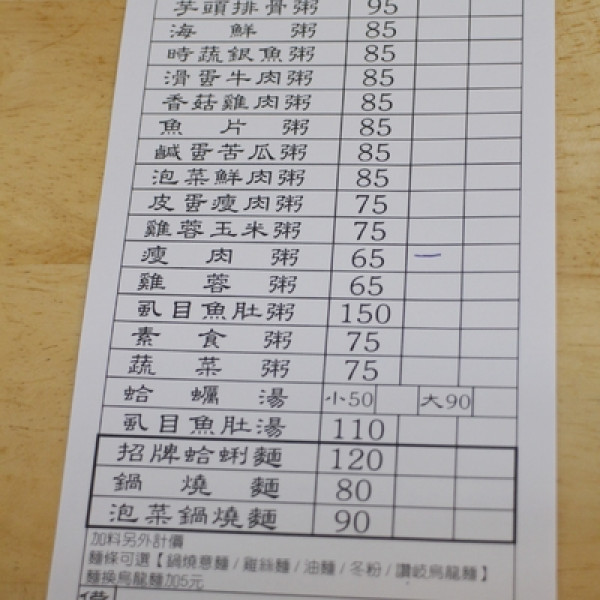 芋頭排骨粥 95
海鮮粥 85
時蔬銀魚粥 85
滑蛋牛肉粥 85
香菇雞肉粥 85
魚片粥 85
鹹蛋苦瓜粥 85
泡菜鮮肉粥 85
皮蛋瘦肉粥 75
雞蓉玉米粥 75
瘦肉粥 65 一
雞蓉粥 65
虱目魚肚粥 150
素食粥 75
蔬菜粥 75
蛤蠣湯 小50 大90
虱目魚肚湯 110
招牌蛤蜊麵 120
鍋燒麵 80
泡菜鍋燒麵 90
加料另外計價
麵條可選【鍋燒意麵/雞絲麵/油麵/冬粉/讚岐烏龍麵】
麵換烏龍麵加5元